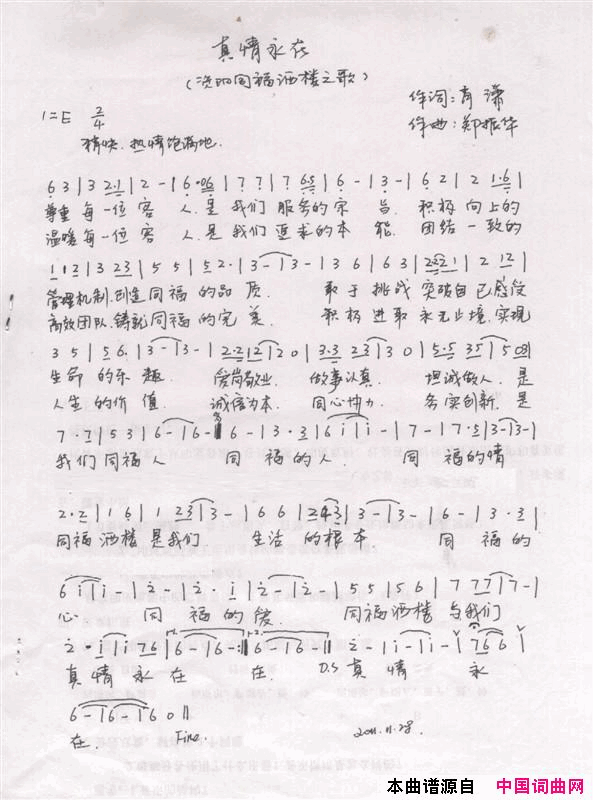 真情永在
(洛阳同福酒楼之歌)
1=E 2/4 作词:肖潇
稍快.热情饱满地. 作曲:郑振华
6 3 | 3 2·1 | 2 - | 6·06 | 7 7 | 7 6·5 | 6 - | 3 - | 6 2 | 2 1·6 |
尊重每一位客人.是我们服务的宗旨.积极向上的
温暖每一位客人.是我们追求的本能.团结一致的
1 1 2 | 3 2 3 | 5 5 | 5 2· | 3 - | 3 - | 3 6 | 6 3 | 2 2 2 1 | 2 1 2 |
管理机制.创造同福的品质.敢于挑战突破自己感受
高效团队.铸就同福的完美.积极进取永无止境.实现
3 5 | 5 6· | 3 - | 3 - | 2·2 1 2 | 2 0 | 3·3 2 3 | 3 0 | 5·5 3 5 | 5 0 3 |
生命的乐趣.爱岗敬业.做事认真.坦诚做人.是
人生的价值.诚信为本.同心协力.务实创新.是
7·7 | 5 3 | 6 - | 6 - ‖ 6 - | 3·3 | 6 i | i - | 7 - | 7·5 | 3 - | 3 - |
我们同福人 同福的人.同福的情
2·2 | 1 6 | 1 2 3 | 3 - | 6 6 | 2 4 3 | 3 - | 3 - | 6 - | 3·3 |
同福酒楼是我们生活的根本 同福的
6 i | i - | 2 - | 2·i | 2 - | 2 - | 5 5 | 5 6 | 7 7 7 | 7 - |
心 同福的爱.同福酒楼与我们
2·i | i 7 6 | 6 - | 6 - :‖ 6 - | 6 - ‖ 2 - | i - | i - | 7 6 6 |
真情永在 在.D.S 真情永
6 - | 6 - | 6 0 ‖
在.Fine. 2011.11.28
本曲谱源自 中国词曲网